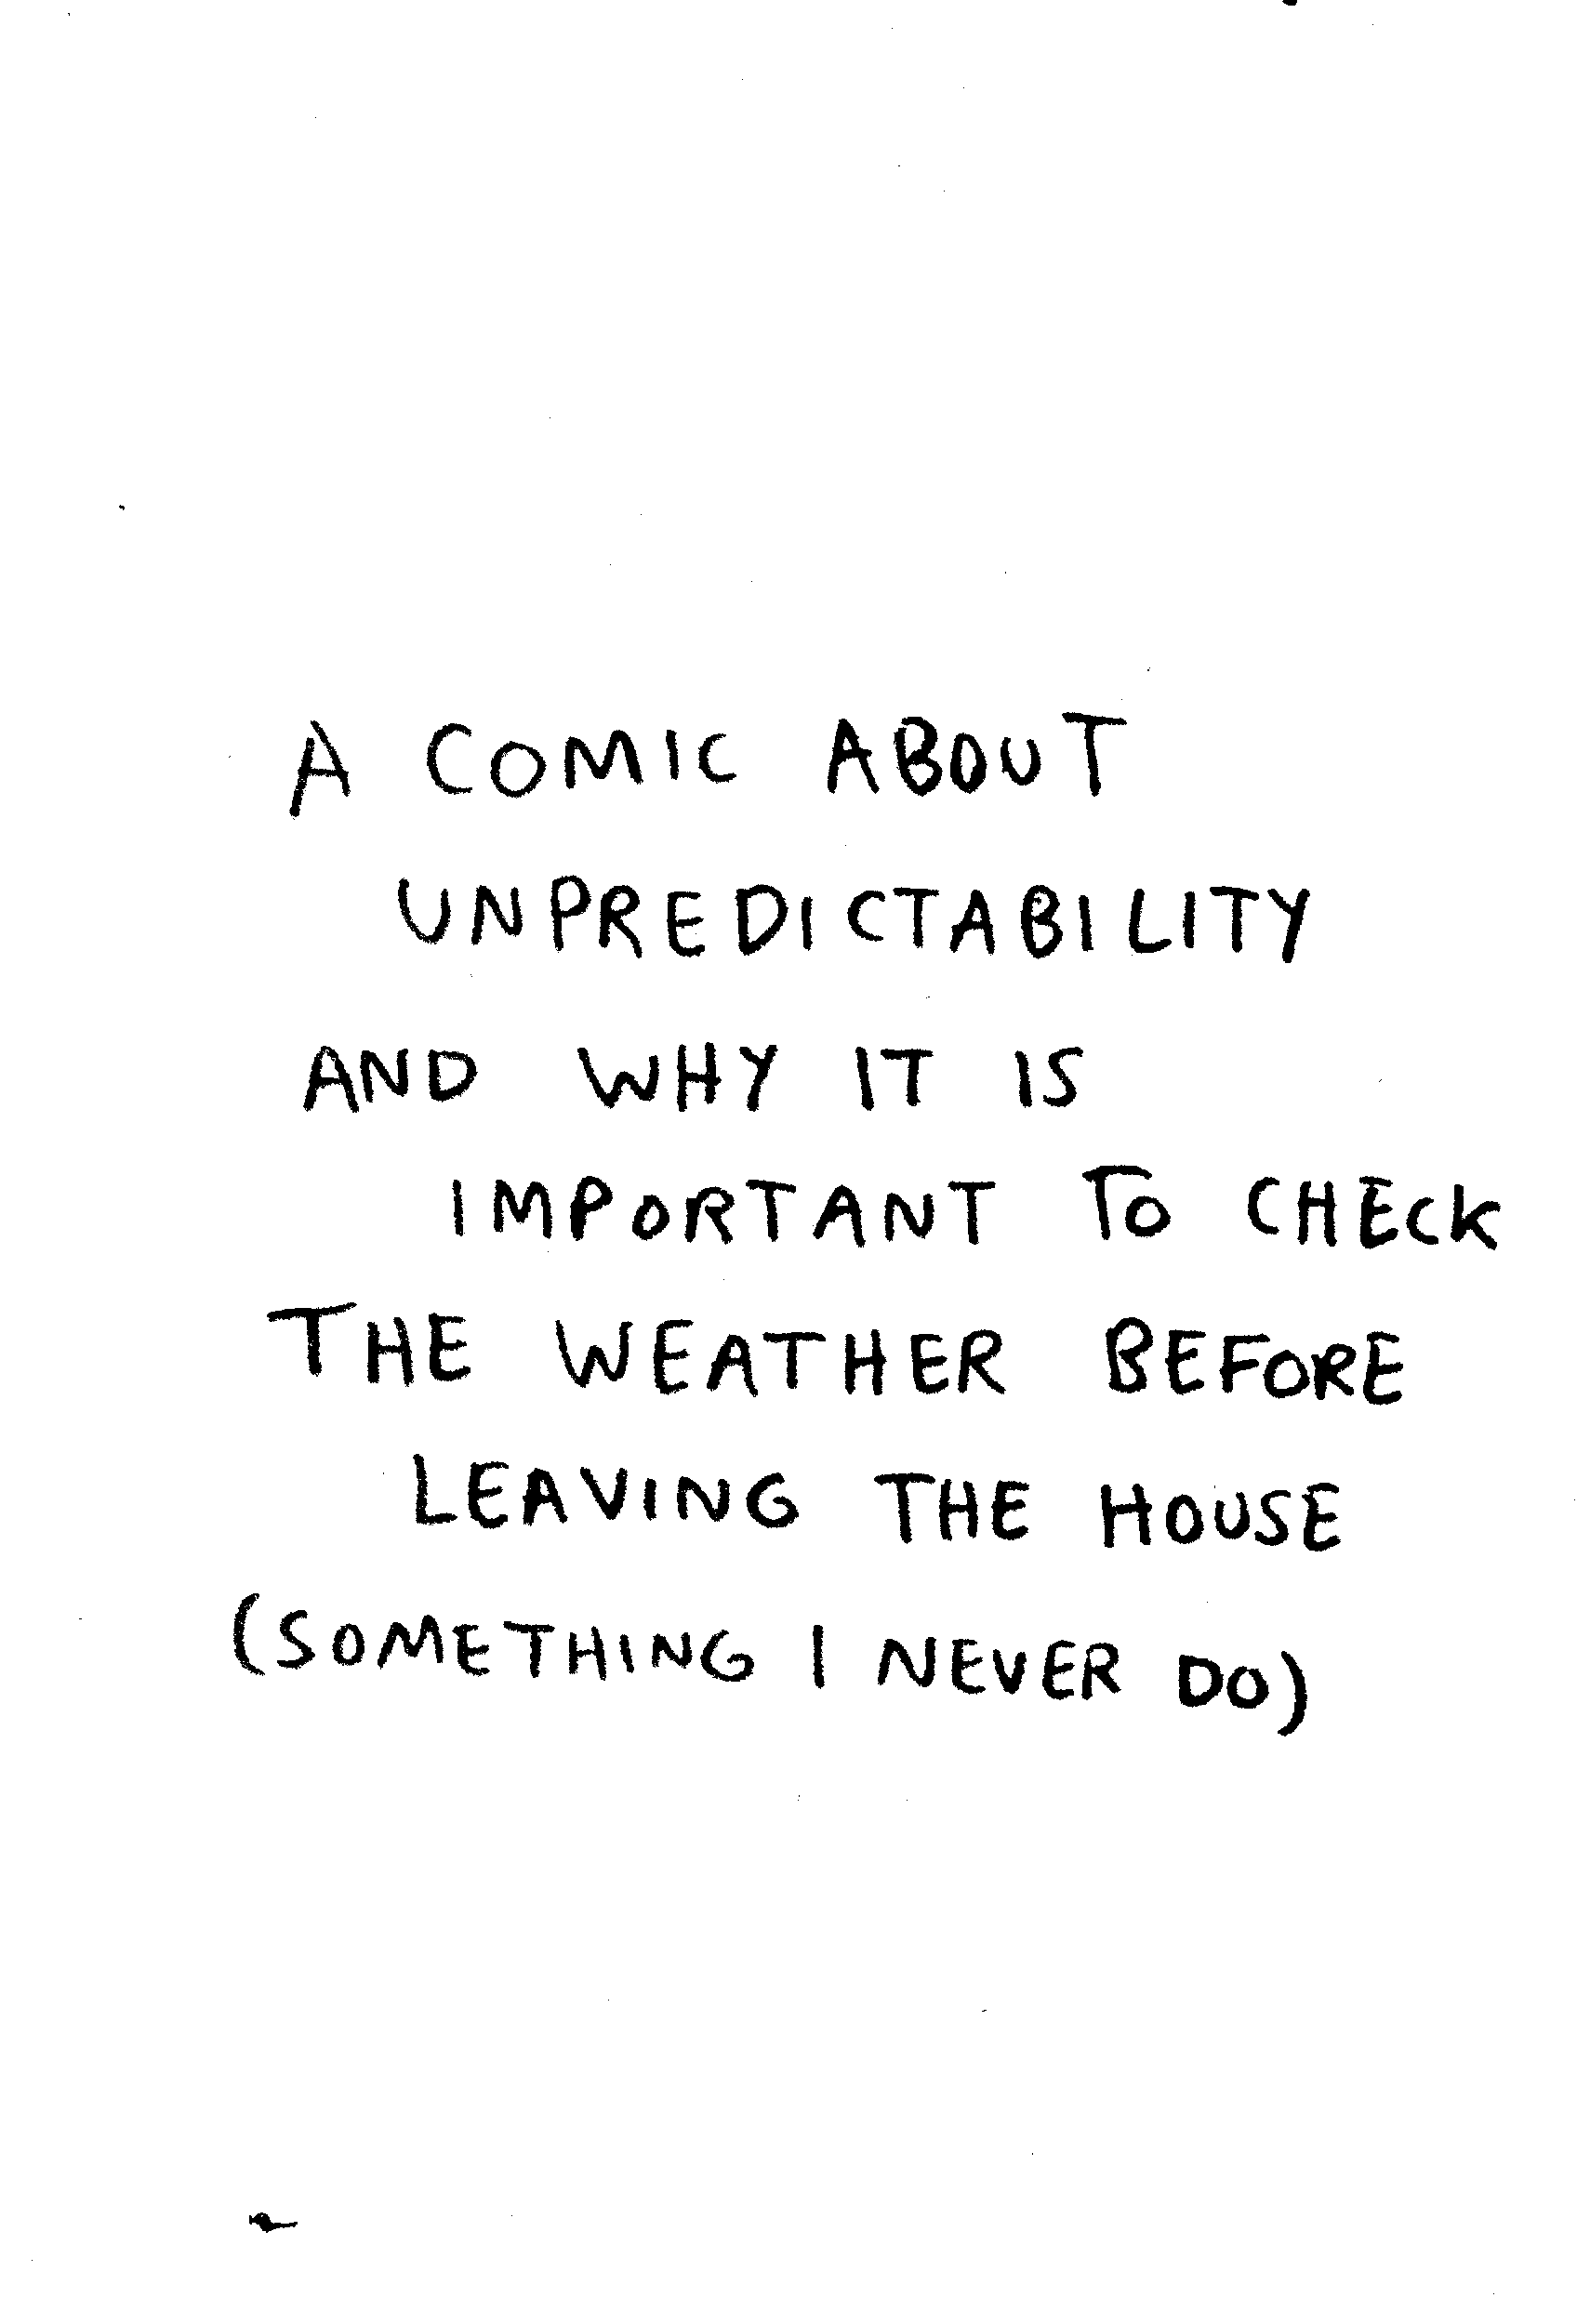 A COMIC ABOUT
UNPREDICTABILITY
AND WHY IT IS
IMPORTANT TO CHECK
THE WEATHER BEFORE
LEAVING THE HOUSE
(SOMETHING I NEVER DO)